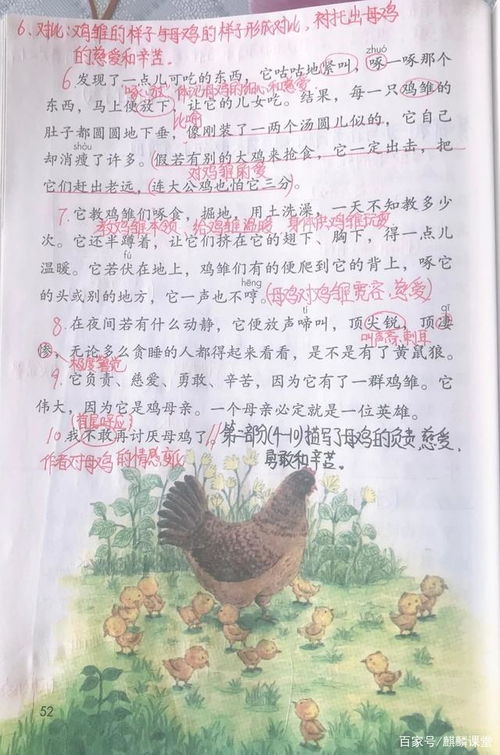 6、对比：鸡雏的样子与母鸡的样子形成对比，衬托出母鸡
的慈爱和辛苦。
zhuó
6.发现了一点儿可吃的东西，它咕咕地紧叫，啄一啄那个
"啄、放"体现母鸡的细心和慈爱
东西，马上便放下，让它的儿女吃。结果，每一只鸡雏的
比喻
肚子都圆圆地下垂，像刚装了一两个汤圆儿似的，它自己
shòu
却消瘦了许多。(假若有别的大鸡来抢食，它一定出击，把
对鸡雏的爱
它们赶出老远，(连大公鸡也怕它三分)。
7.它教鸡雏们啄食，掘地，用土洗澡，一天不知教多少
教鸡雏本领 给鸡雏温暖 身体供鸡雏玩耍
次。它还半蹲着，让它们挤在它的翅下、胸下，得一点儿
fú
温暖。它若伏在地上，鸡雏们有的便爬到它的背上，啄它
hēng
的头或别的地方，它一声也不哼。(母鸡对鸡雏宽容、慈爱)
tí qī
8.在夜间若有什么动静，它便放声啼叫，顶尖锐，顶凄
叫声高、刺耳
惨，无论多么贪睡的人都得起来看看，是不是有了黄鼠狼。
极度警觉
9.它负责、慈爱、勇敢、辛苦，因为它有了一群鸡雏。它
伟大，因为它是鸡母亲。一个母亲必定就是一位英雄。
(首尾呼应)
10我不敢再讨厌母鸡了。//第二部分(4-10)描写了母鸡的负责、慈爱、
作者对母鸡的情感变化 勇敢和辛苦。
52
百家号/麒麟课堂